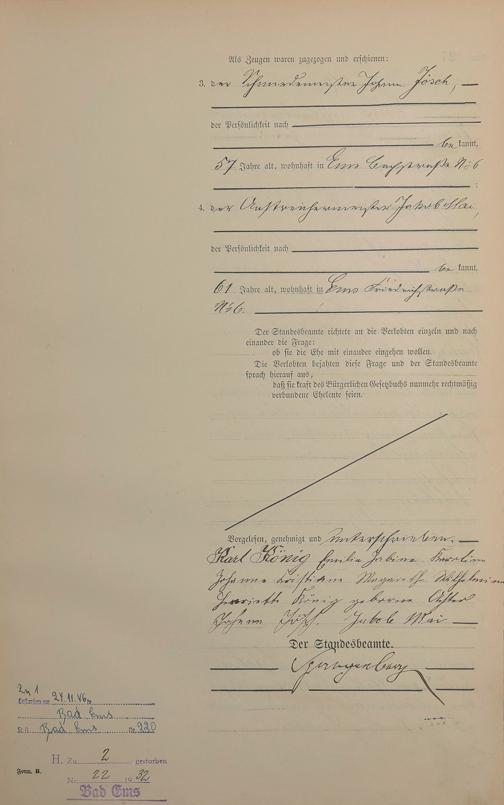 Als Zeugen waren zugezogen und erschienen:
3. der Schmiedemeister Johann Jösch,
der Persönlichkeit nach
be kannt,
57 Jahre alt, wohnhaft in Ems Bachstraße No 6
;
4. der Anstreichermeister Jakob Mai,
der Persönlichkeit nach
be kannt,
61 Jahre alt, wohnhaft in Ems Friedrichstraße
No 6.
Der Standesbeamte richtete an die Verlobten einzeln und nach
einander die Frage:
ob sie die Ehe mit einander eingehen wollen.
Die Verlobten bejahten diese Frage und der Standesbeamte
sprach hierauf aus,
daß sie kraft des Bürgerlichen Gesetzbuchs nunmehr rechtmäßig
verbundene Eheleute seien.
Vorgelesen, genehmigt und unterschrieben.
Karl König Emilie Sabine Karoline
Johanne Kristiane Wilhelmine
Henriette König geborene
Johann Jösch. Jakob Mai
Der Standesbeamte.
24.11.
Bad Ems
Bad Ems Nr. 220
H. Zu 2 gestorben
Nr. 22 1932
Bad Ems
Form. B.